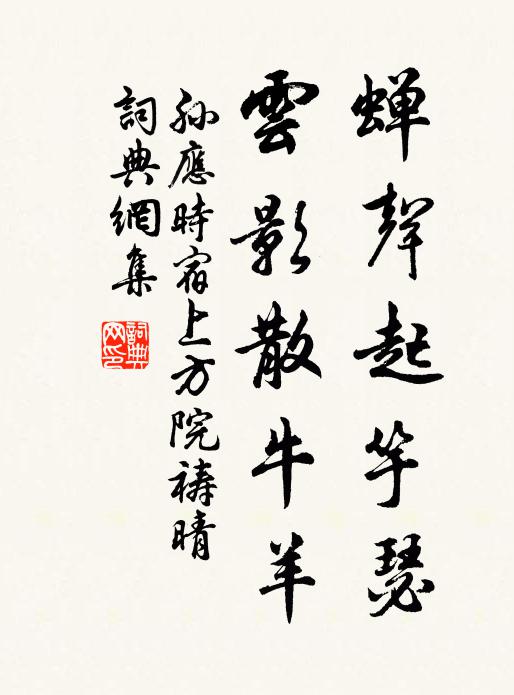 蝉聲起竽瑟
雲影散牛羊
孫應時宿上方院祷晴
詞典網集
詞典
网印